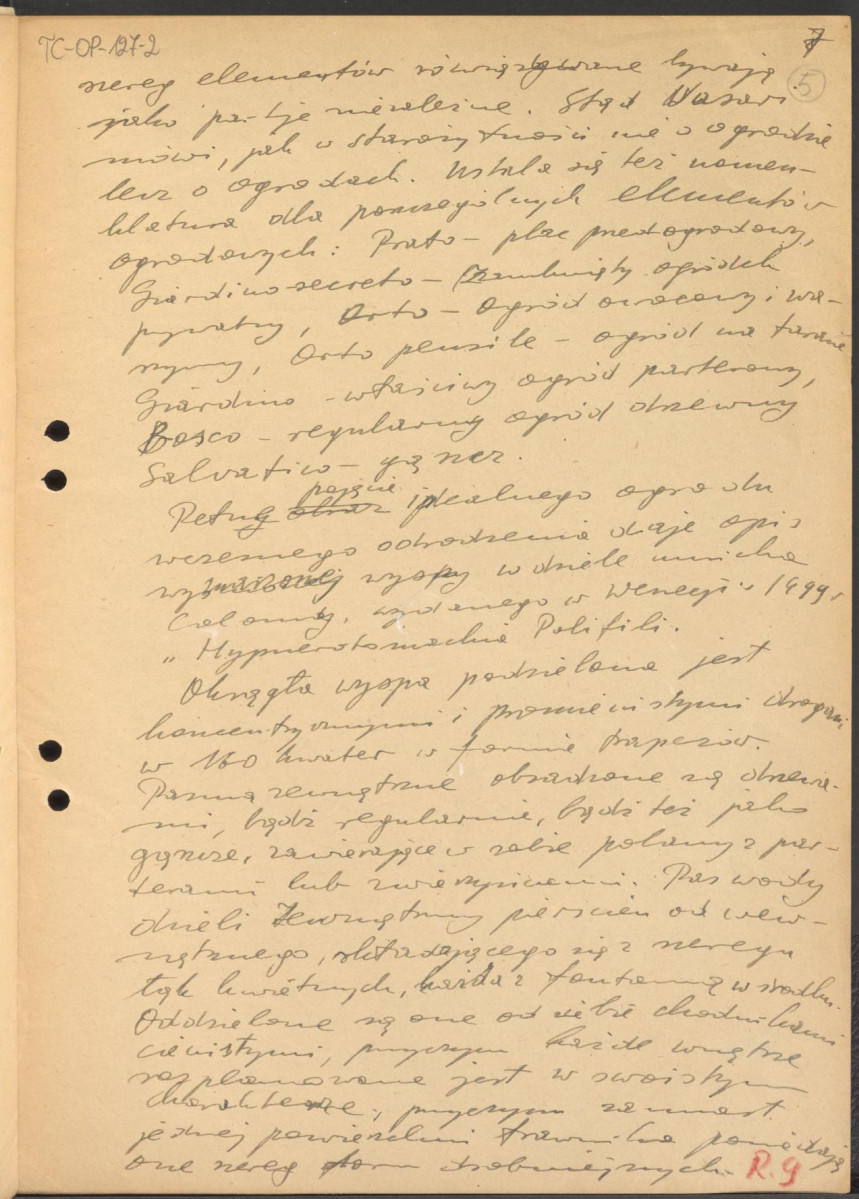 TC-OP-127-2
7
5
szereg elementów rozwiązywane bywają
jako partje niezależne. Stąd Vasari
mówi, jak w starożytności nie o ogrodzie
lecz o ogrodach. Ustala się też nomen-
klatura dla poszczególnych elementów
ogrodowych: Prato - plac przedogrodowy,
Giardino secreto - zamknięty ogródek
prywatny, Orto - ogród owocowy i wa-
rzywny, Orto pensile - ogród na tarasie
Giardino - właściwy ogród parterowy,
Bosco - regularny ogród drzewny
Salvatico - gąszcz.
pojęcie
Pełny obraz idealnego ogrodu
wczesnego odrodzenia daje opis
wymarzonej wyspy w dziele mnicha
Colonny, wydanego w Wenecji w 1499 r
„Hypnerotomachia Polifili.
Okrągła wyspa podzielona jest
koncentrycznymi i promienistymi drogami
w 160 kwater w formie trapezów.
Pasma zewnętrzne obsadzone są drzewa-
mi, bądź regularnie, bądź też jako
gąszcze, zawierające w sobie polany z par-
terami lub zwierzyńcami. Pas wody
dzieli zewnętrzny pierścień od wew-
nętrznego, składającego się z szeregu
łąk kwietnych, każda z fontanną w środku.
Oddzielone są one od siebie chodnikami
cienistymi, przyczym każde wnętrze
rozplanowane jest w swoistym
charakterze, przyczym zamiast
jednej powierzchni trawnika posiadają
one szereg form drobniejszych. R. 9